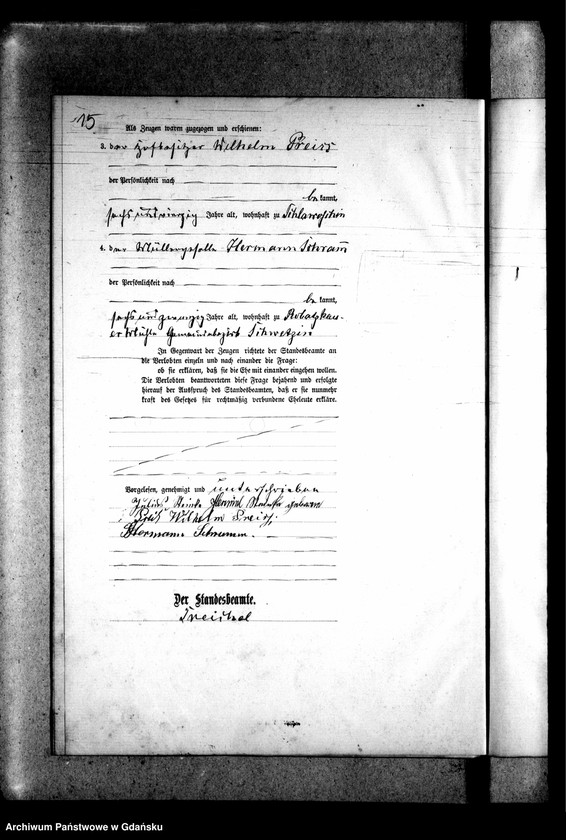 15
Als Zeugen waren zugezogen und erschienen:
3. der Hofbesitzer Wilhelm Preiss
der Persönlichkeit nach
be kannt,
sechs und vierzig Jahre alt, wohnhaft zu
4. der Müllergeselle Hermann Schramm
der Persönlichkeit nach
be kannt,
sechs und zwanzig Jahre alt, wohnhaft zu
Gemeindebezirk
In Gegenwart der Zeugen richtete der Standesbeamte an
die Verlobten einzeln und nach einander die Frage:
ob sie erklären, daß sie die Ehe mit einander eingehen wollen.
Die Verlobten beantworteten diese Frage bejahend und erfolgte
hierauf der Ausspruch des Standesbeamten, daß er sie nunmehr
kraft des Gesetzes für rechtmäßig verbundene Eheleute erkläre.
Vorgelesen, genehmigt und unterschrieben
Julius geborene
Wilhelm Preiss.
Hermann Schramm.
Der Standesbeamte.
Archiwum Państwowe w Gdańsku